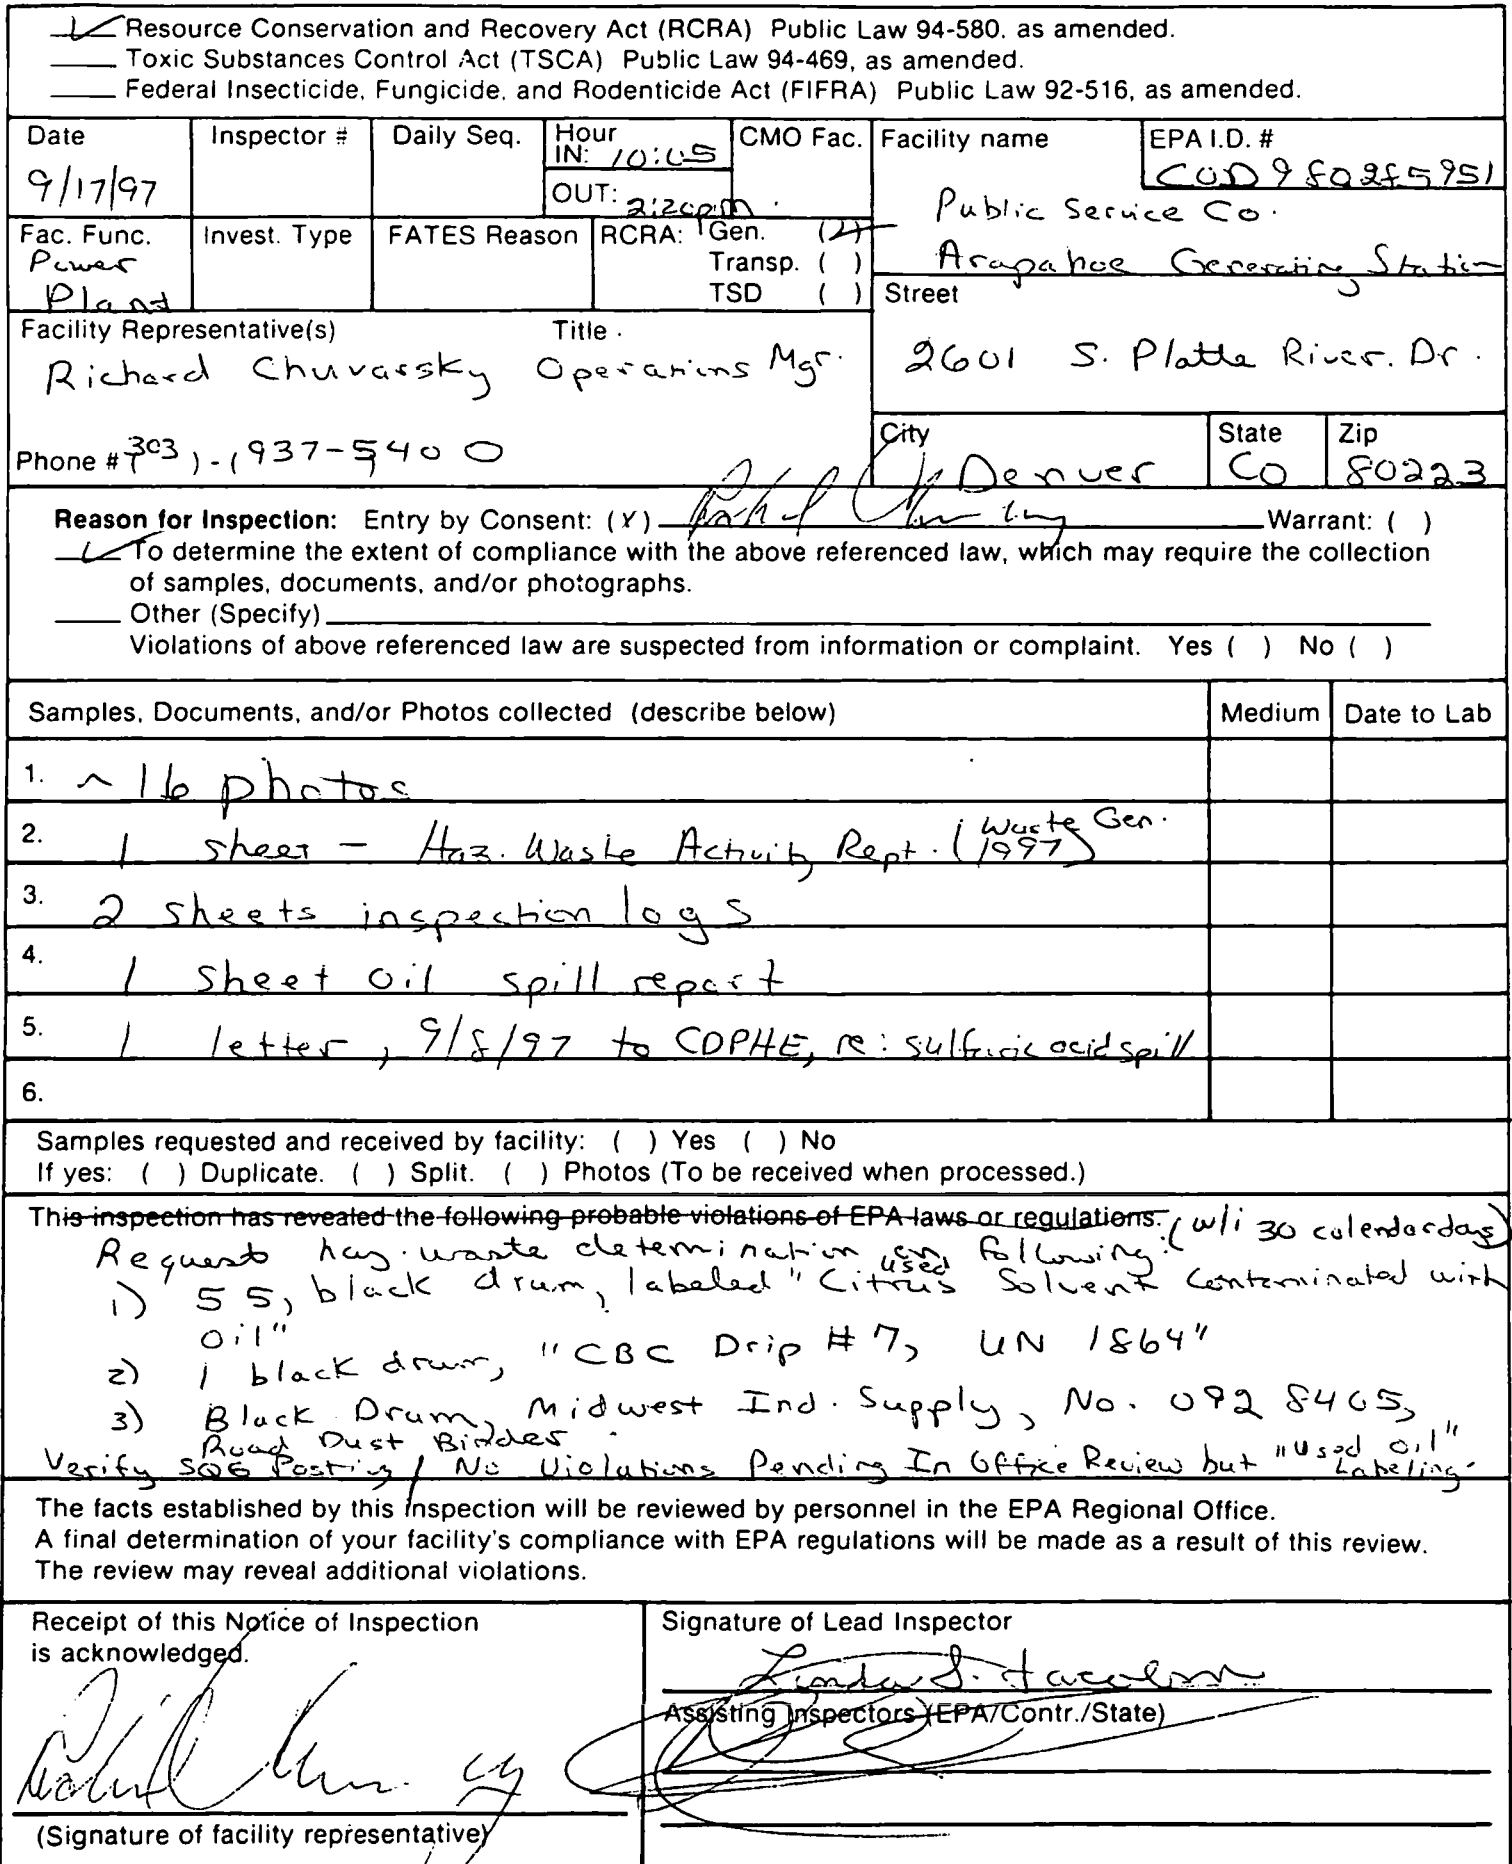 Resource Conservation and Recovery Act (RCRA) Public Law 94-580. as amended.
Toxic Substances Control Act (TSCA) Public Law 94-469, as amended.
Federal Insecticide, Fungicide, and Rodenticide Act (FIFRA) Public Law 92-516, as amended.
Date
9/17/97
Inspector #
Daily Seq.
Hour
IN: 10:05
OUT: 2:20pm
CMO Fac.
Facility name
EPA I.D. #
COD980285951
Public Service Co.
Arapahoe Generating Station
Fac. Func.
Power
Plant
Invest. Type
FATES Reason
RCRA: Gen. (2)
Transp. ( )
TSD ( )
Street
2601 S. Platte River. Dr.
Facility Representative(s) Title
Richard Chuvarsky Operations Mgr.
Phone # (303)-(937-5400
City
Denver
State
CO
Zip
80223
Reason for Inspection: Entry by Consent: (X) Warrant: ( )
To determine the extent of compliance with the above referenced law, which may require the collection
of samples, documents, and/or photographs.
Other (Specify)
Violations of above referenced law are suspected from information or complaint. Yes ( ) No ( )
Samples, Documents, and/or Photos collected (describe below) Medium Date to Lab
1. ~16 photos
2. 1 sheet - Haz. Waste Activity Rept. (Waste Gen. 1997)
3. 2 sheets inspection logs
4. 1 sheet oil spill report
5. 1 letter, 9/8/97 to CDPHE, re: sulfuric acid spill
6.
Samples requested and received by facility: ( ) Yes ( ) No
If yes: ( ) Duplicate. ( ) Split. ( ) Photos (To be received when processed.)
This inspection has revealed the following probable violations of EPA laws or regulations. (w/i 30 calendar days)
Request haz. waste determination on following:
1) 55, black drum, labeled "used Citrus Solvent Contaminated with
oil"
2) 1 black drum, "CBC Drip #7, UN 1864"
3) Black Drum, Midwest Ind. Supply, No. 092 8405,
Road Dust Binder
Verify SQG Posting / No Violations Pending In Office Review but "Used Oil" Labeling.
The facts established by this inspection will be reviewed by personnel in the EPA Regional Office.
A final determination of your facility's compliance with EPA regulations will be made as a result of this review.
The review may reveal additional violations.
Receipt of this Notice of Inspection
is acknowledged.
(Signature of facility representative)
Signature of Lead Inspector
Linda S. Jacobson
Assisting Inspectors (EPA/Contr./State)